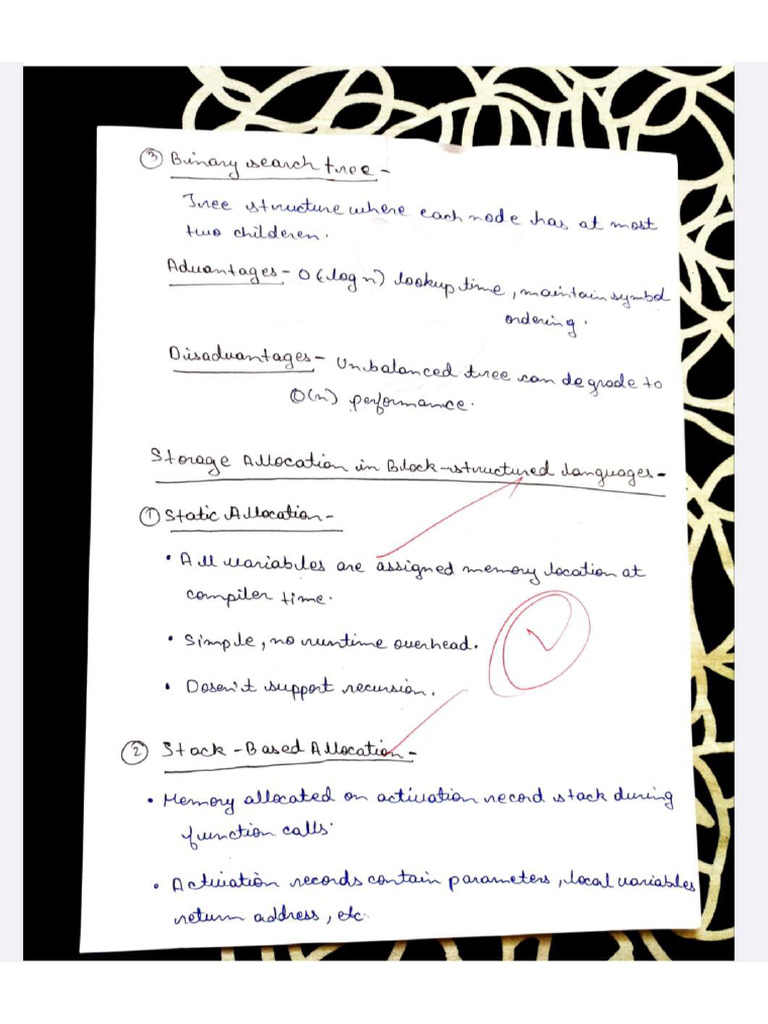 ③ Binary search tree -
Tree structure where each node has at most
two childeren.
Advantages - O(log n) lookup time, maintain symbol
ordering.
Disadvantages - Unbalanced tree can degrade to
O(n) performance.
Storage Allocation in Block-structured languages -
① Static Allocation -
• All variables are assigned memory location at
compiler time.
• Simple, no runtime overhead.
• Dosen't support recursion.
② Stack-Based Allocation -
• Memory allocated on activation record stack during
function calls.
• Activation records contain parameters, local variables
return address, etc.